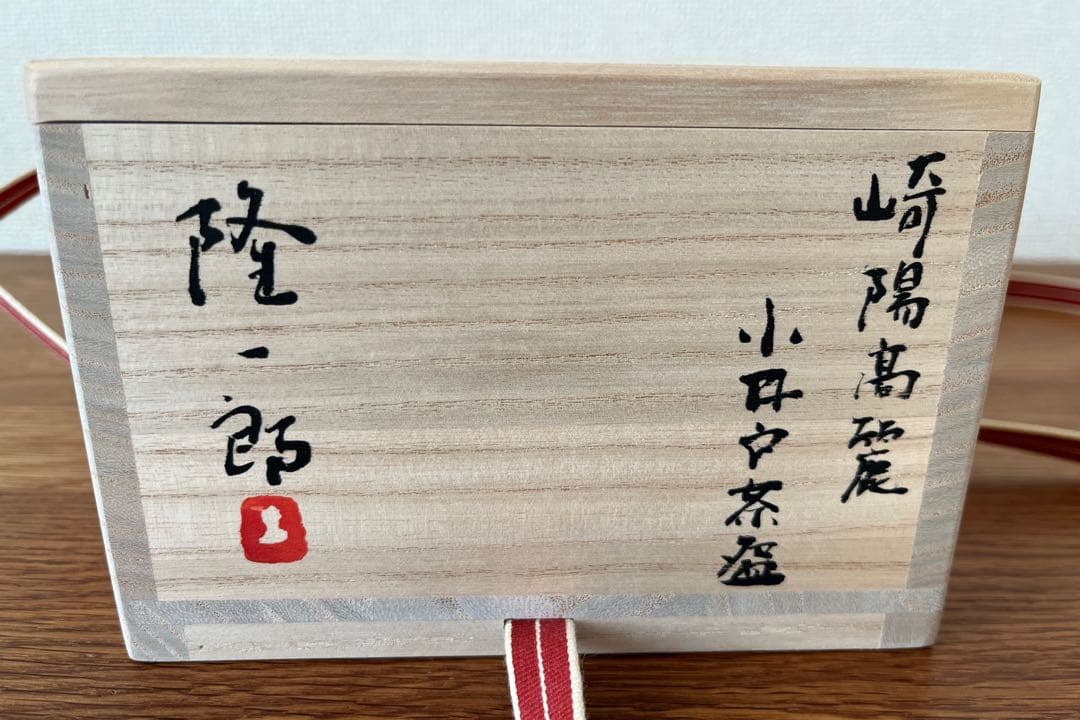 崎陽高麗
小井戸茶盌
隆一郎